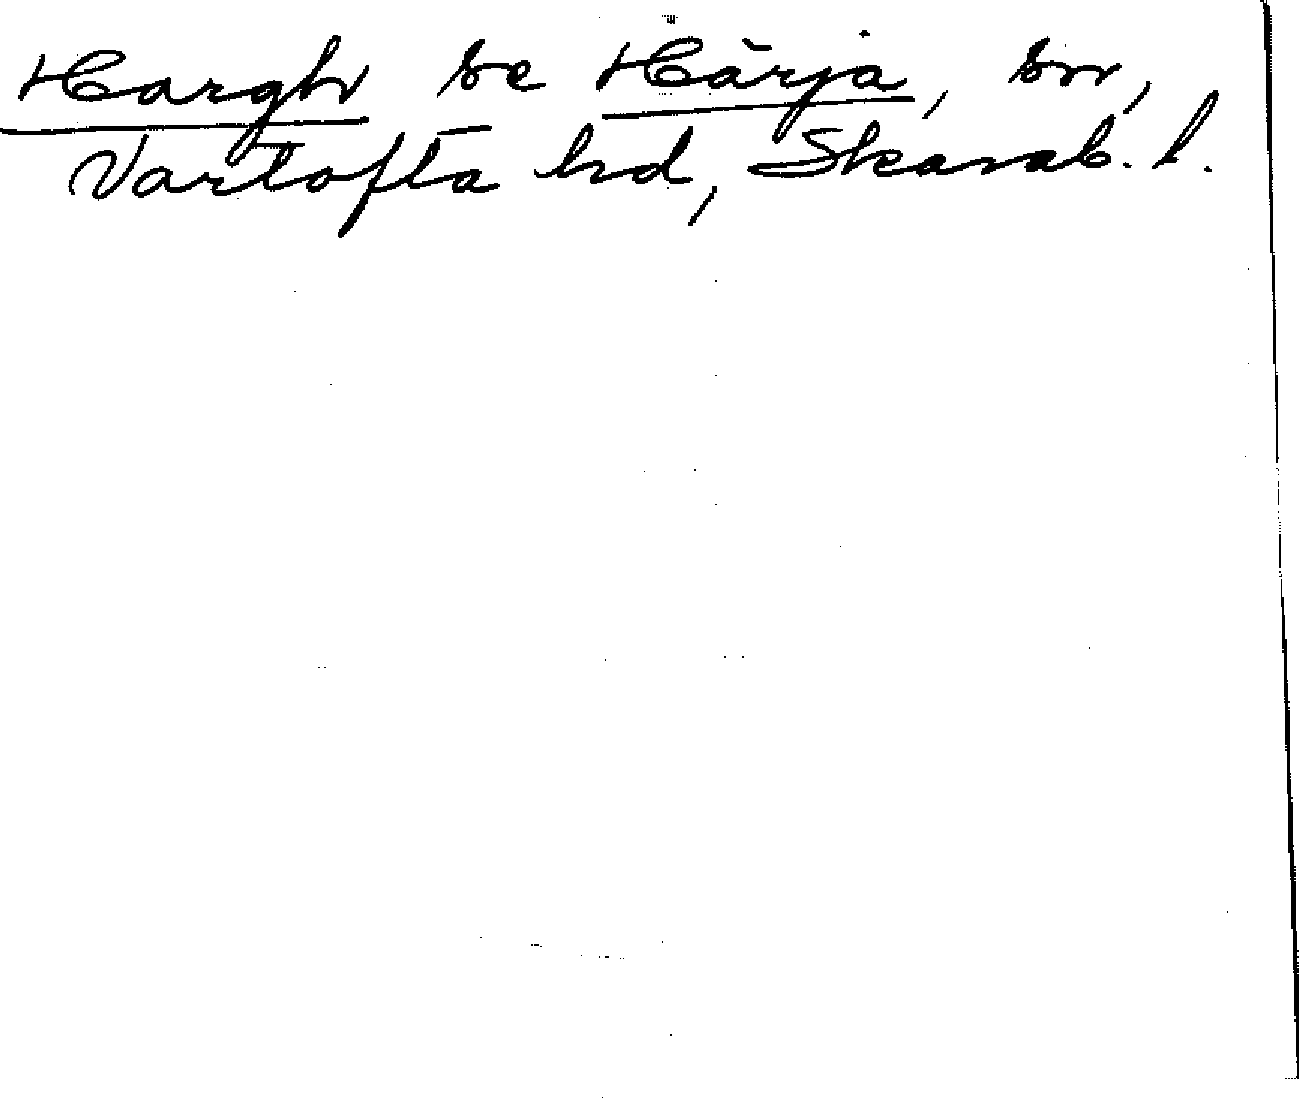 Hargh se Härja, sn,
Vartofta hd, Skarab. l.